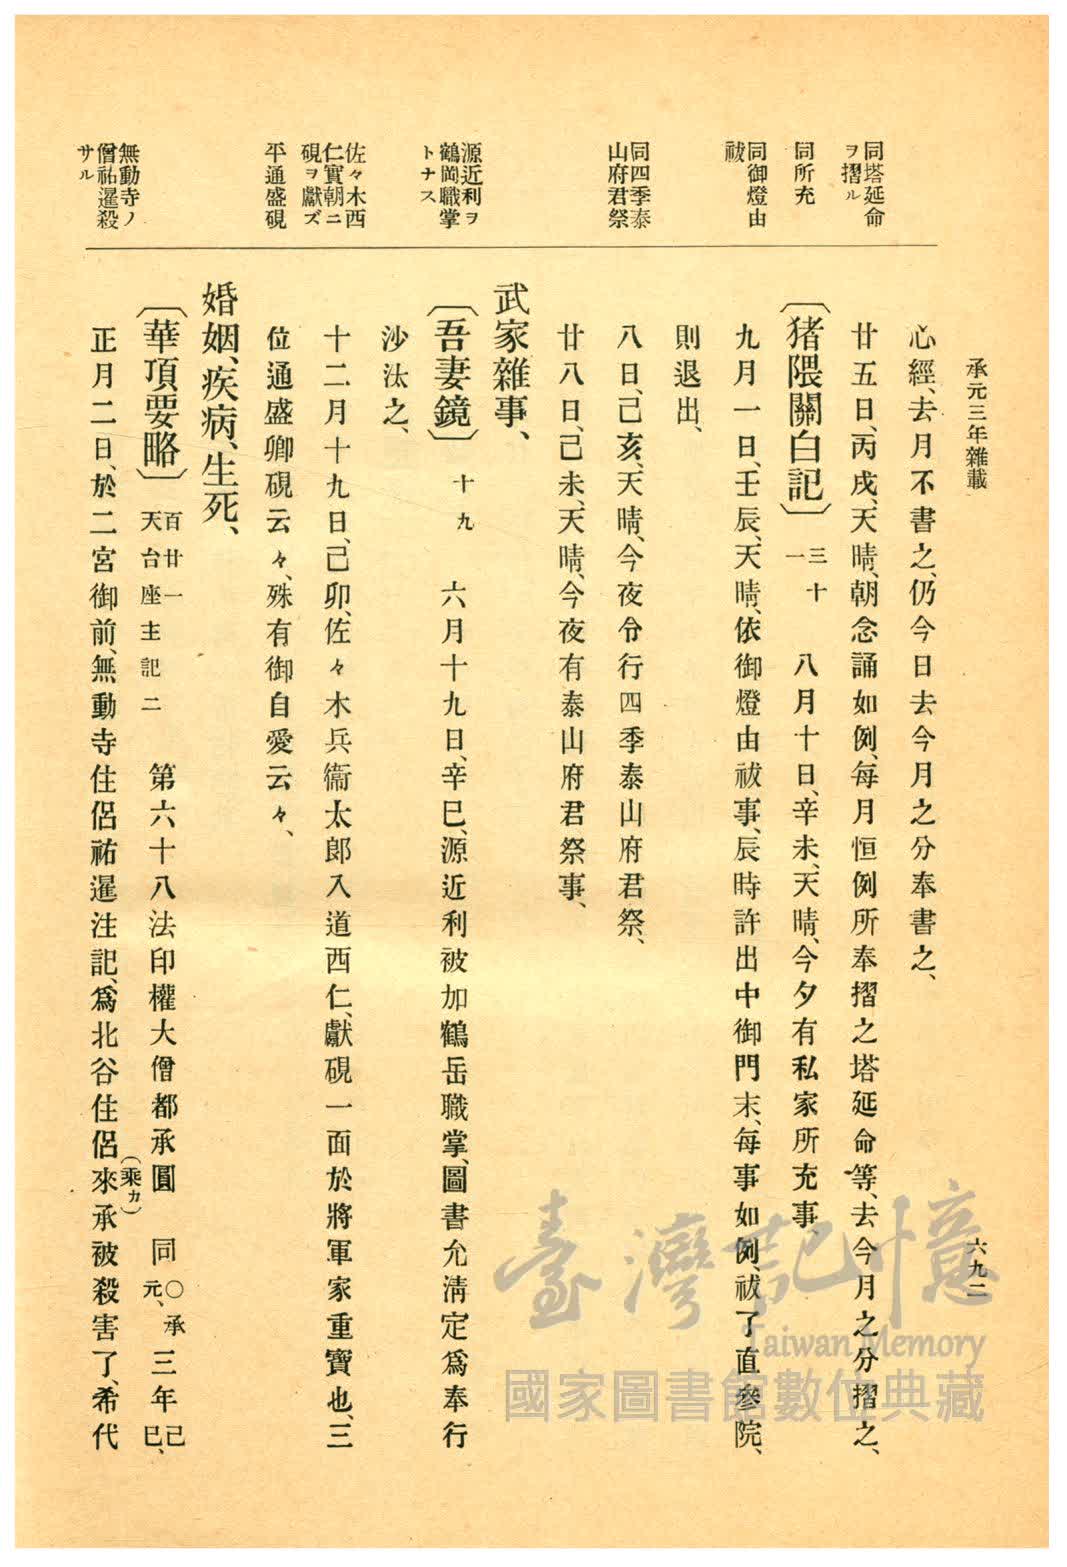 承元三年雜載
六九二
同塔延命
ヲ摺ル
同所充
同御燈由
祓
同四季泰
山府君祭
源近利ヲ
鶴岡職掌
トナス
佐々木西
仁實朝ニ
硯ヲ獻ズ
平通盛硯
無動寺ノ
僧祐暹殺
サル
心經、去月不書之、仍今日去今月之分奉書之、
廿五日、丙戌、天晴、朝念誦如例、每月恒例所奉摺之塔延命等、去今月之分摺之、
〔猪隈關白記〕 三十一 八月十日、辛未、天晴、今夕有私家所充事、
九月一日、壬辰、天晴、依御燈由祓事、辰時許出中御門末、每事如例、祓了直參院、
則退出、
八日、己亥、天晴、今夜令行四季泰山府君祭、
廿八日、己未、天晴、今夜有泰山府君祭事、
武家雜事、
〔吾妻鏡〕 十九 六月十九日、辛巳、源近利被加鶴岳職掌、圖書允淸定爲奉行
沙汰之、
十二月十九日、己卯、佐々木兵衞太郎入道西仁、獻硯一面於將軍家重寶也、三
位通盛卿硯云々、殊有御自愛云々、
婚姻、疾病、生死、
〔華頂要略〕 百廿一 天台座主記二 第六十八法印權大僧都承圓 同〇承元、三年己巳、
正月二日、於二宮御前、無動寺住侶祐暹注記、爲北谷住侶來(乘カ)承被殺害了、希代
臺灣記憶
Taiwan Memory
國家圖書館數位典藏